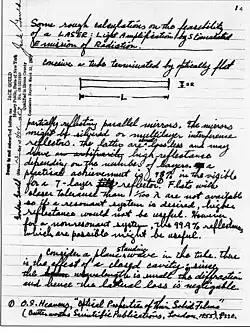 Some rough calculations on the feasibility
of a LASER: Light Amplification by Stimulated
Emission of Radiation.
conceive a tube terminated by optically flat
L
partially reflecting parallel mirrors. The mirrors
might be silvered or multilayer interference
reflectors. The latter are lossless and may
have high reflectance
depending on the number of layers. A
practical achievement is 98% in the visible
for a 7-layer reflector. Flats with
closer tolerance than are not available
so if a resonant system is desired, higher
reflectance would not be useful. However
for a nonresonant system, the 99.9% reflectances
which are possible might be useful.
consider a plane standing wave in the tube. There
is the effect of a closed cavity; since
the wavelength is small the diffraction
and hence the lateral loss is negligible.
O.S. Heavens, "Optical Properties of Thin Solid Films"
(Butterworths Scientific Publications, London, 1955)
JACK GOULD